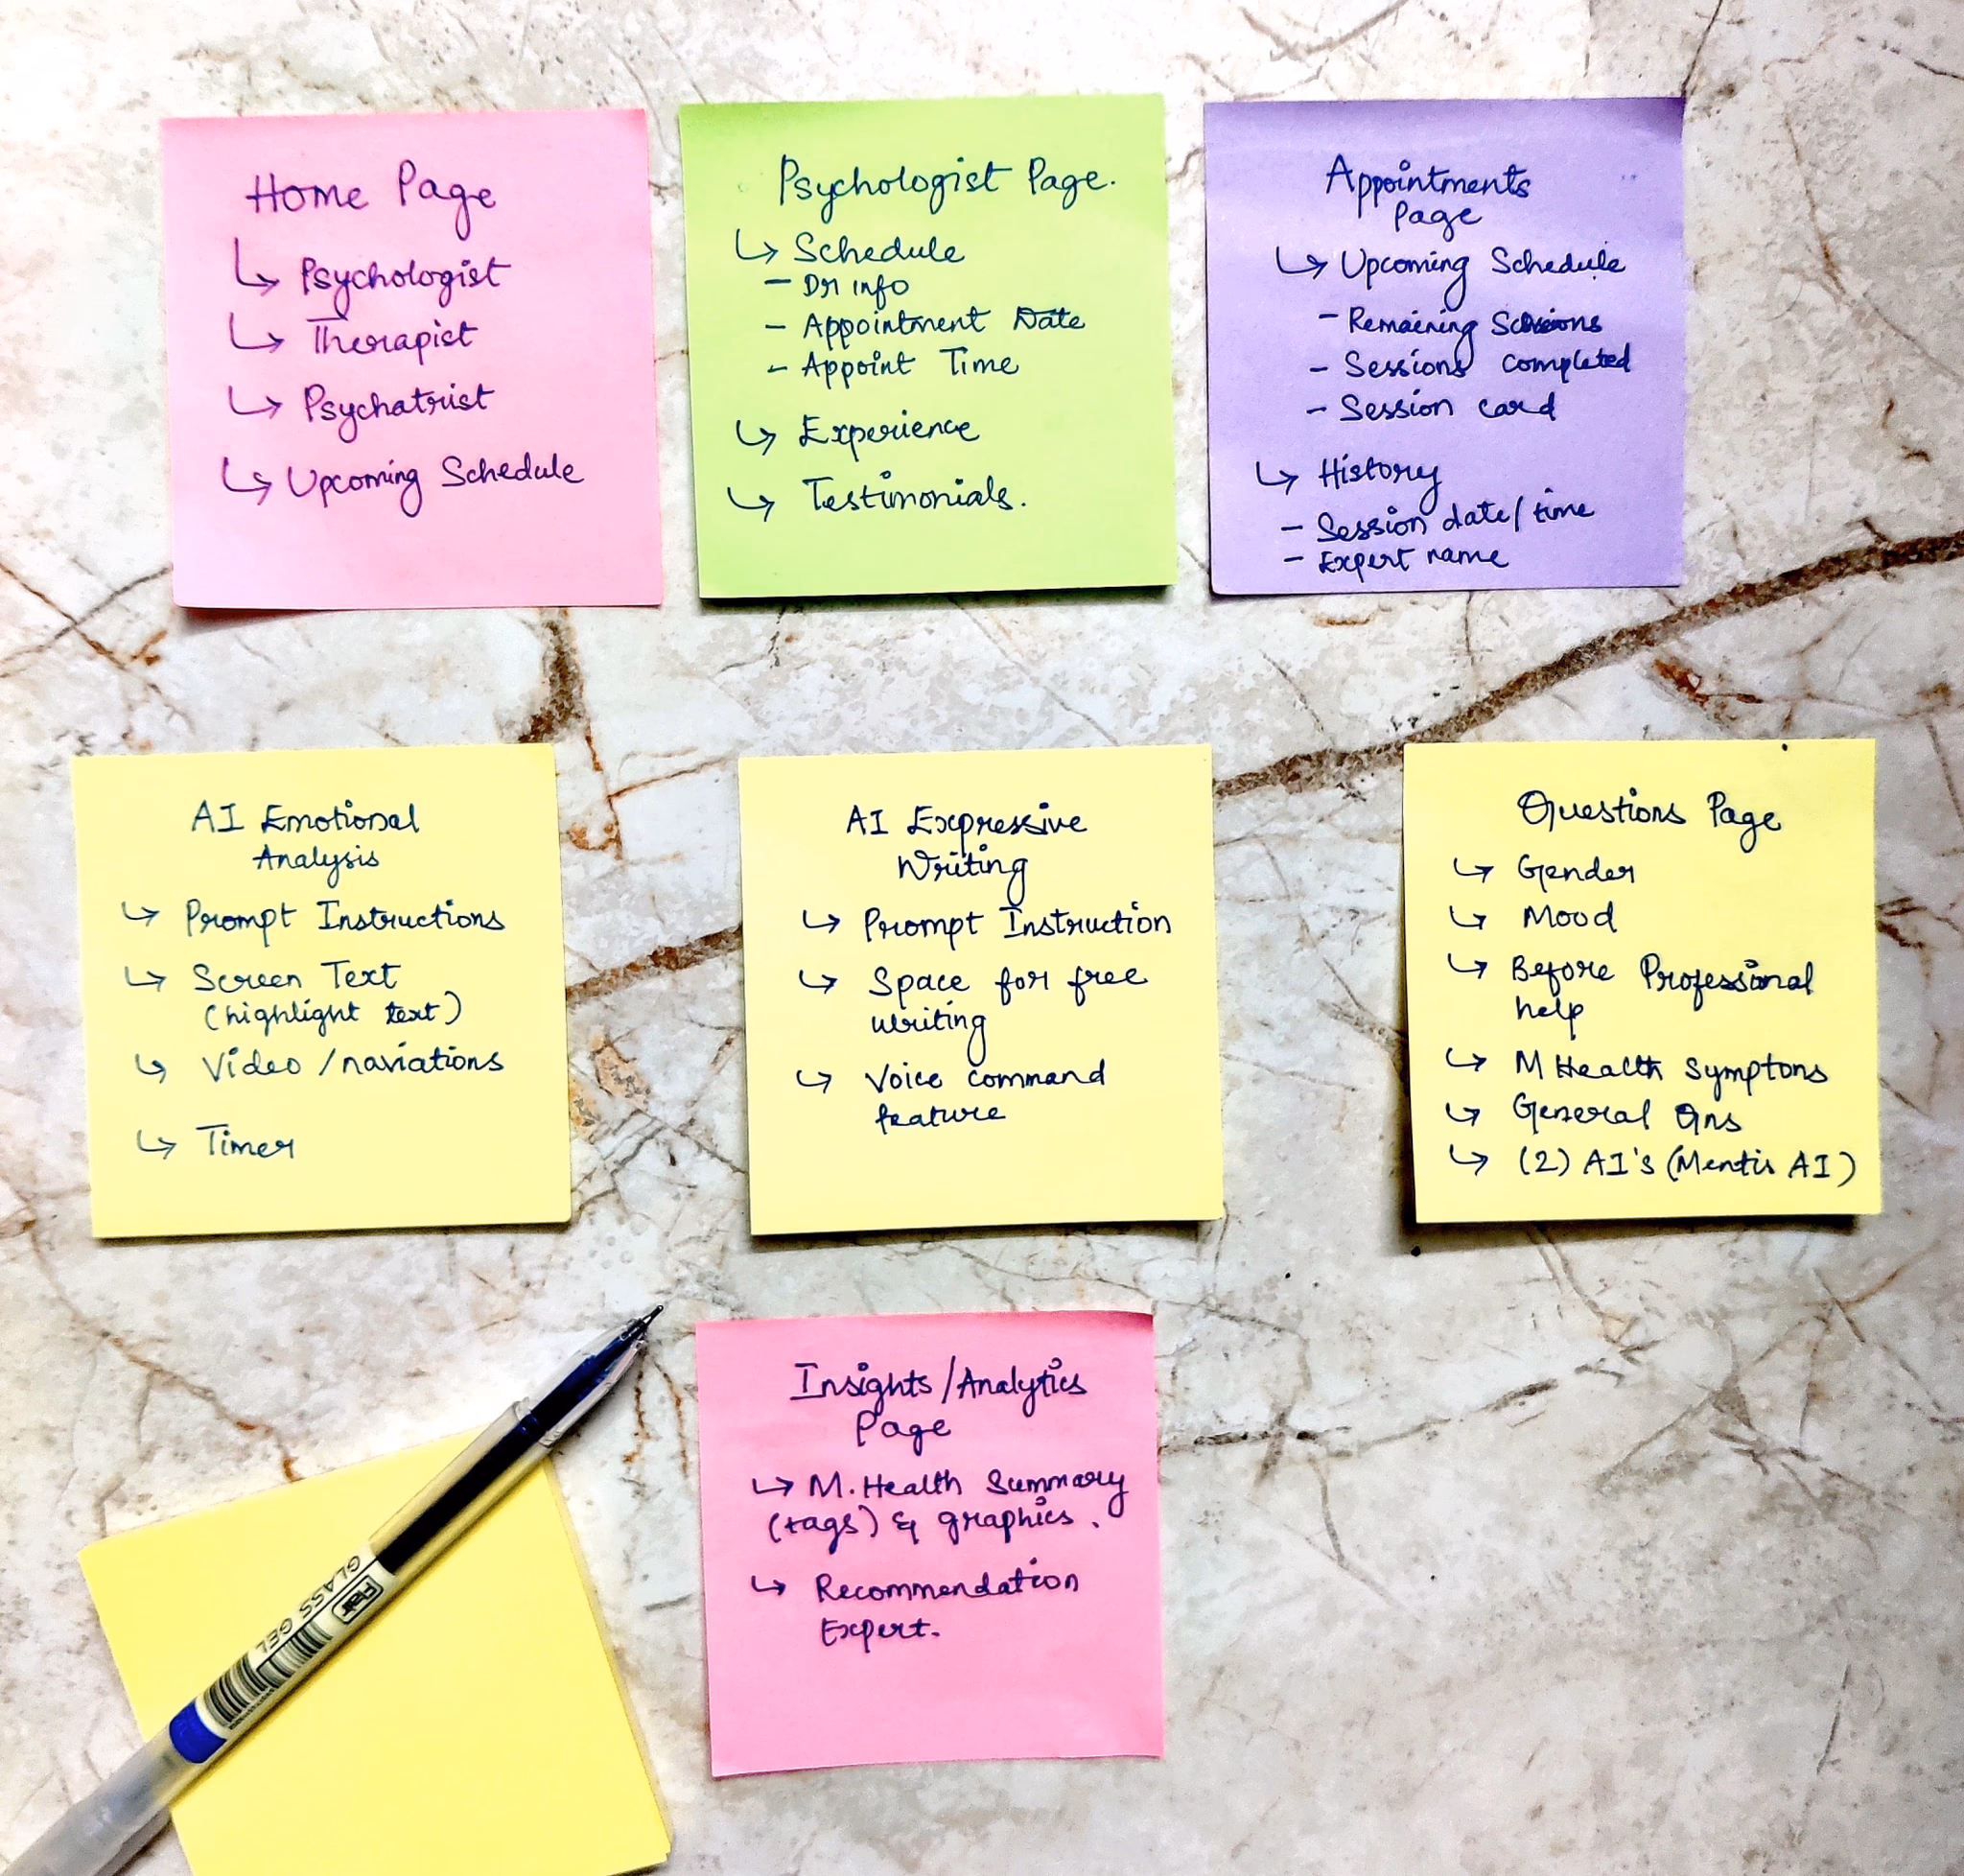 Home Page
↳ Psychologist
↳ Therapist
↳ Psychatrist
↳ Upcoming Schedule
Psychologist Page.
↳ Schedule
– Dr info
– Appointment Date
– Appoint Time
↳ Experience
↳ Testimonials.
Appointments
Page
↳ Upcoming Schedule
– Remaining
– Sessions completed
– Session card
↳ History
– Session date/time
– Expert name
AI Emotional
Analysis
↳ Prompt Instructions
↳ Screen Text
(highlight text)
↳ Video /naviations
↳ Timer
AI Expressive
Writing
↳ Prompt Instruction
↳ Space for free
writing
↳ Voice command
feature
Questions Page
↳ Gender
↳ Mood
↳ Before Professional
help
↳ M Health Symptons
↳ General Qns
↳ (2) AI's (Mentis AI)
Insights/Analytics
Page
↳ M. Health Summary
(tags) & graphics.
↳ Recommendation
Expert.
Flair
GLASS GEL